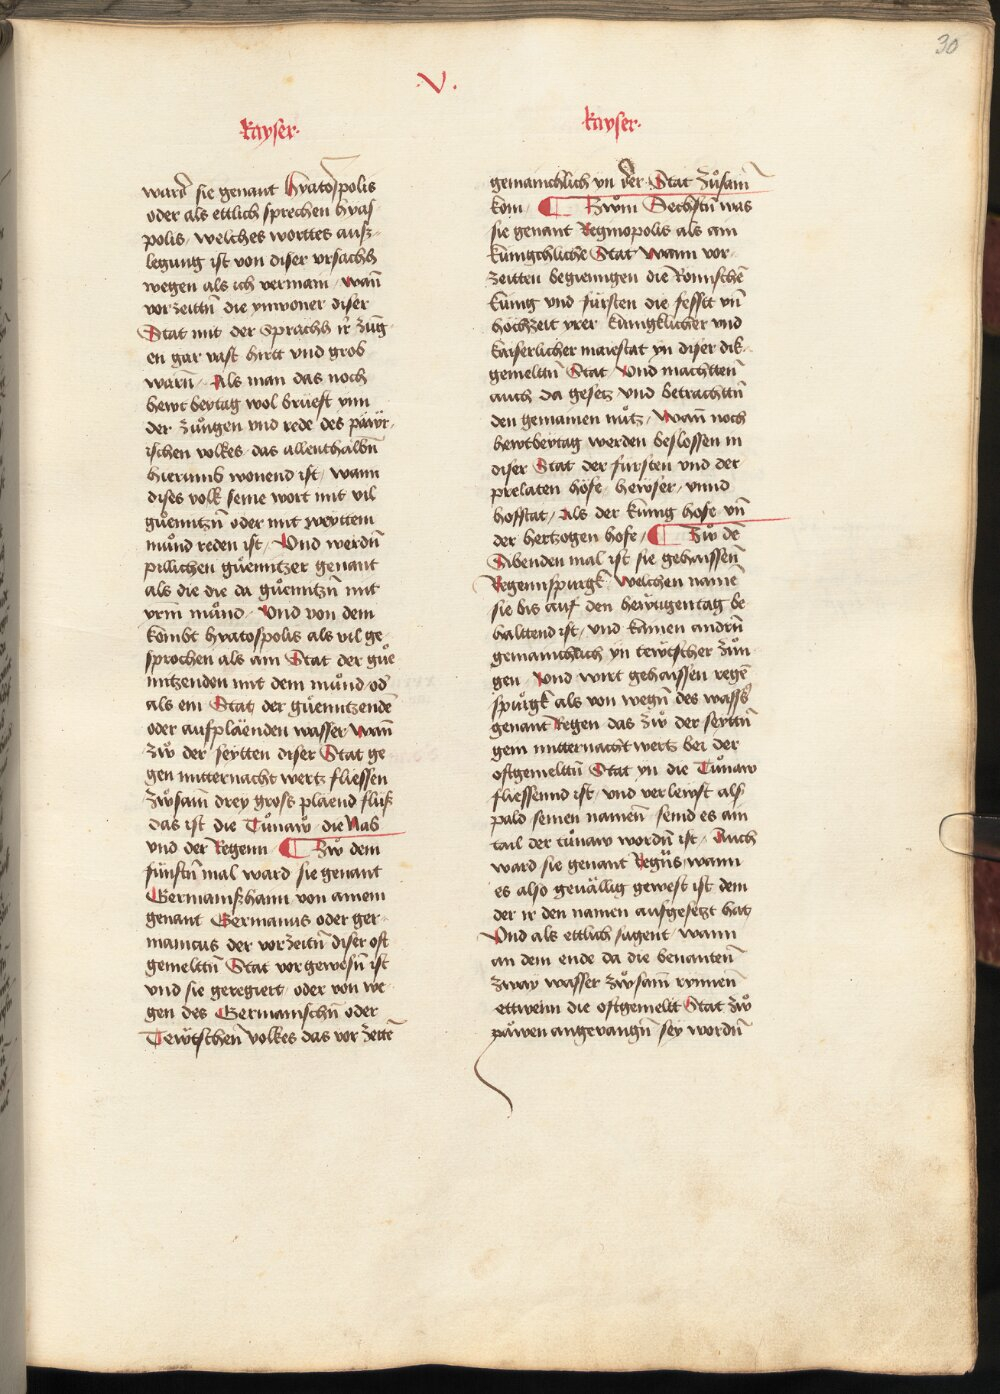 30
.V.
kayser.
ward sie genant hyatospolis
oder als ettlich sprechen hyas
polis / welches worttes ausz-
legung ist von diser vrsachh
wegen als ich vermain / wan̄
vor zeittn̄ die ynwoner diser
Stat mit der sprachh ir̄ zung
en gar vast hirtt vnd grob
warn̄ / Als man das noch
hewt beytag wol brüeft vnn
der zůngen vnd rede des päyr-
ischen volkes das allenthalbn̄
hierumb wonend ist / wann
dises volk seine wort mit vil
gůemitzn̄ oder mit weyttem
můnd reden ist / Vnd werdn̄
pillichen gůemitzer genant
als die die da gůemitzn̄ mit
yrm̄ můnd / Vnd von dem
kombt hyatospolis als vil ge
sprochen als ain Stat der gůe
mitzenden mit dem můnd / od̄
als ein Stat der gůemitzendē
oder aufpläenden wasser wan̄
zẘ der seytten diser Stat ge
gen mitternacht wertz fliessen
zẘsam̄ drey gross pläend fluſz
das ist die Tůnaẘ / die Nab
vnd der Regenn / ¶ Zẘ dem
fünftn̄ mal ward sie genant
Germanszhaim von ainem
genant Germanus oder ger-
manicus der vor zeitn̄ diser oft
gemeltn̄ Stat vor gewesn̄ ist
vnd sie geregiert / oder von we-
gen des Germanischn̄ oder
Tewtschen̄ volkes das vor zeitē
kayser.
gemainchlich yn der Stat zůsam̄
kom / ¶ Zwm̊ Sechstn̄ was
sie genant Regniopolis als ain
künigchliche Stat wann vor-
zeitten begienngen die Romischē
künig vnd fürsten die fesstt vn̄
hochzeit yrer künigklicher vnd
kaiserlicher maiestat yn diser dik-
gemeltn̄ Stat / Vnd machtten̄
auch da gesetz vnd betrachttn̄
den gemainen nůtz / Wan̄ noch
hewtbeytag werden beslossen in
diser Stat der fürsten vnd der
prelaten höfe / hewser / vnnd
hofstat / Als der künig hofe vn̄
der hertzogen hofe / ¶ Zẘ dē
Sibenden mal ist sie gehaissen̄
Regennspurgk / Welchen namē
sie bis auf den hewtigentag be
halttend ist / vnd kainen andrn̄
gemainchlich yn tewtscher zůn
gen / Vnd wirt gehaissen regē
spůrgk als von wegn̄ des wassrs
genant Regen das zẘ der seyttn̄
gem mitternacht wertz bei der
oftgemeltn̄ Stat yn die Tůnaw
fliessennd ist / vnd verleust als
pald seinen namen̄ / seind es ain
tail der tůnaw wordn̄ ist / Auch
ward sie genant Regůs / wann
es also geuällig gewest ist dem
der ir den namen aufgesetzt hat
Vnd als ettlich sagent / wann
an dem ende da die benanten̄
zway wasser zẘsam̄ rynnen̄
ettwenn die oftgemelt Stat zẘ
päwen angeuangn̄ sey wordn̄